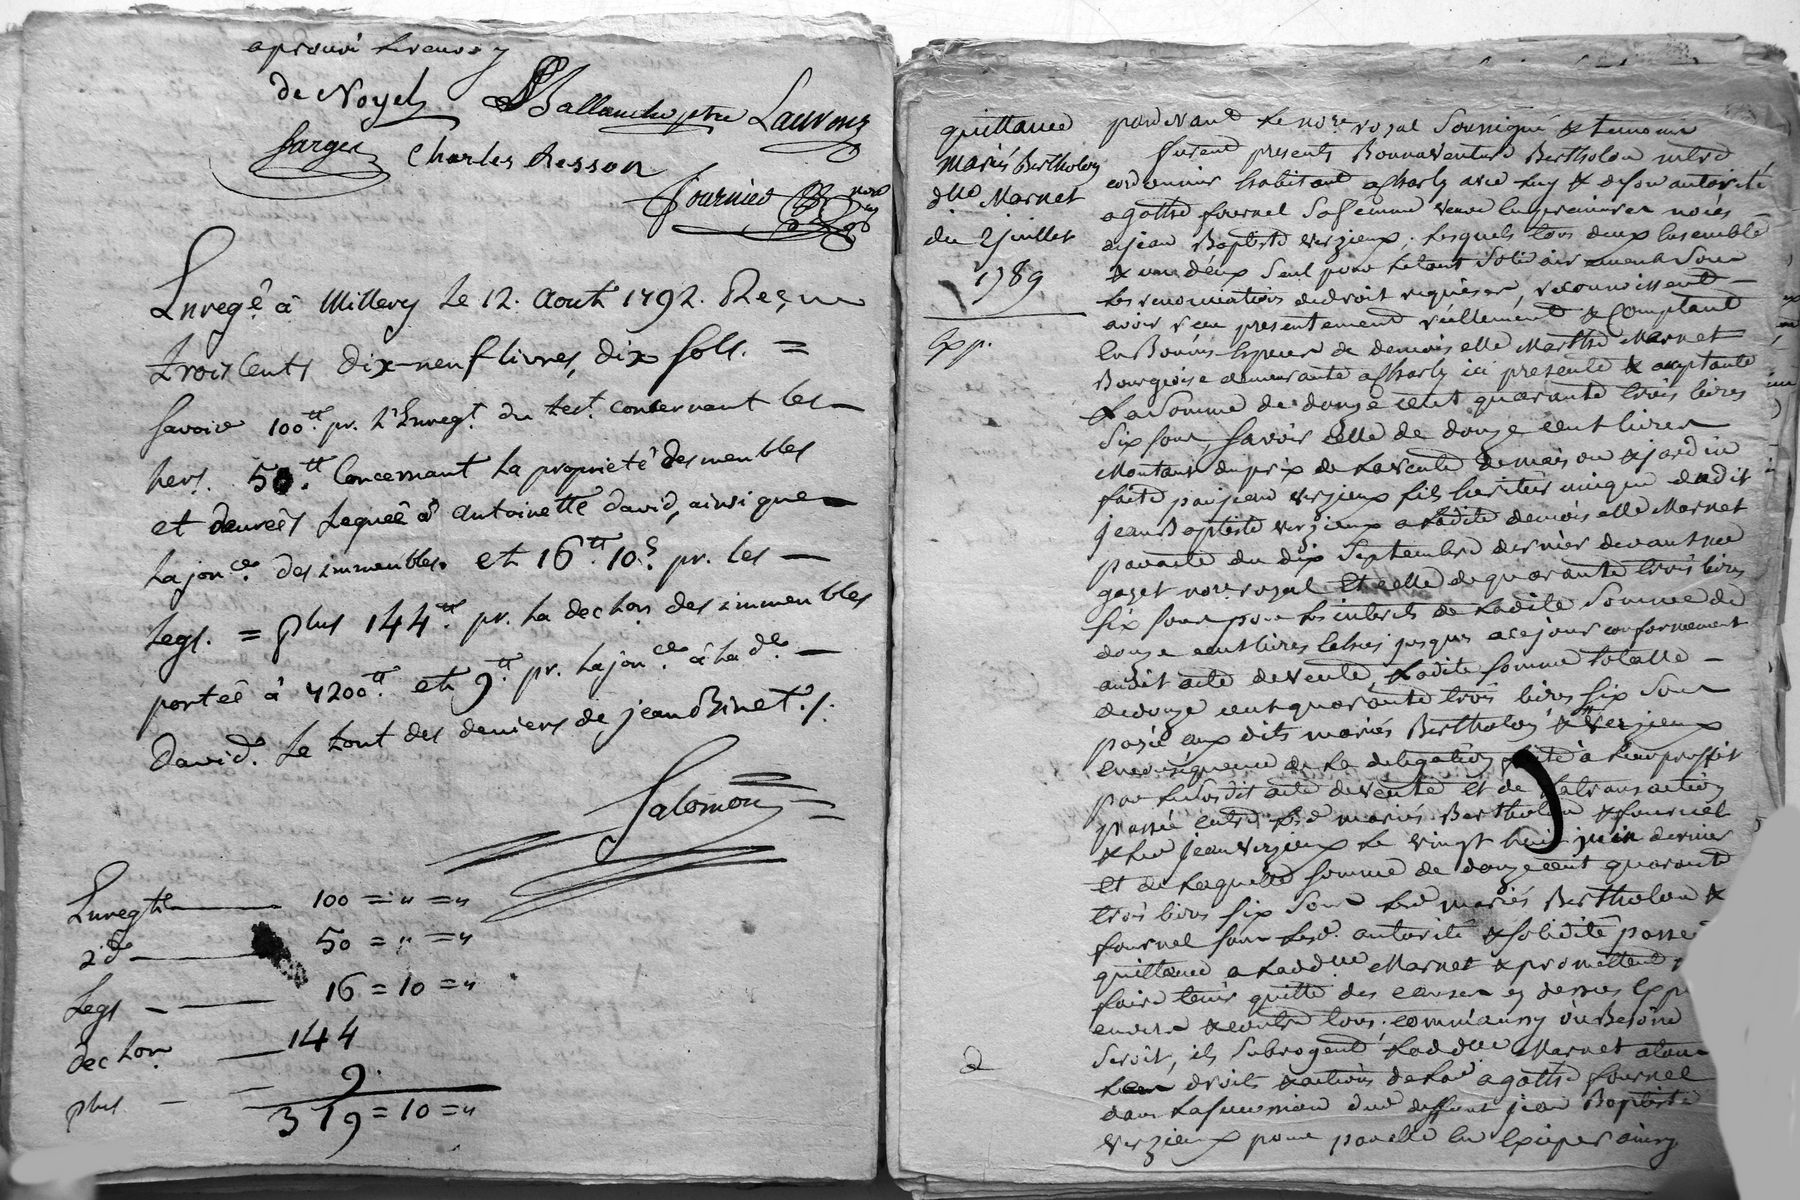 aprouvé
de Noyel Ballanche ptre Laurens
Sarger Charles Besson
Fournier
Enregé. à Millery Le 12. Aout 1792. Reçu
trois Cents dix-neuf livres, dix sols. =
Savoir 100tt. pr. L'Enregt. du test. concernant les
hers. 50tt. Concernant la proprieté des meubles
et denrées Leguée à Antoinette david, ainsi que
la jouce. des immeubles. et 16tt. 10s. pr. les
Legs. = Plus 144tt. pr. La declon. des immeubles
portée à 7200tt. et 9tt. pr. La jouce. à La de.
David. Le tout des deniers de jean Binet ./.
Salomon
Enregt 100 = " = "
id 50 = " = "
Legs 16 = 10 = "
declon 144
plus 9.
319 = 10 = "
quittance
mariés Bertholon
dlle Marnet
du 2 juillet
1789
Exp.
pardevant Le nore. royal soussigné & temoins
furent presents Bonnaventure Bertholon mtre
cordonnier habitant a Charly avec luy & de son autorité
agathe fournel sa femme veuve en premieres noces
de jean Baptiste verzieux, lesquels tous deux ensemble
& un d'eux seul pour le tout solidairement sous
les renonciations de droit requises, reconnoissent
avoir reçu presentement réellement & Comptant
en Bonnes especes de demoiselle Marthe Marnet
Bourgeoise demeurante a Charly ici presente & acceptante
La Somme de douze cent quarante trois livres
Six sous, savoir celle de douze cent livres
Montant du prix de la vente de maison & jardin
faite par jean verzieux fils heritier unique dudit
jean Baptiste verzieux a ladite demoiselle Marnet
par acte du dix Septembre dernier devant me
gazet nore. royal Et celle de quarante trois livres
six sous pour les interets de ladite Somme de
douze cent livres echus jusques a ce jour conformement
audit acte de vente, Ladite somme totalle
de douze cent quarante trois livres six sous
payée aux dits mariés Bertholon & verzieux
en consequence de la delegation faite à leur proffit
par le susdit acte de vente et de la transaction
passée entre les d. mariés Bertholon & fournel
& led. jean verzieux le vingt huit juin dernier
Et de Laquelle somme de douze cent quarante
trois livres six sous Led. mariés Bertholon &
fournel sous lesd. autorité & solidité passent
quittance a lad. dlle Marnet & promettent
faire tenir quitte des causes cy dessus
envers & contre tous. comm'aussy où Besoin
Seroit, ils subrogent Lad. dlle Marnet a tous
Les droits & actions de lad. agathe fournel
dans La succession dud. deffunt jean Baptiste
verzieux pour par elle les Exercer ainsy